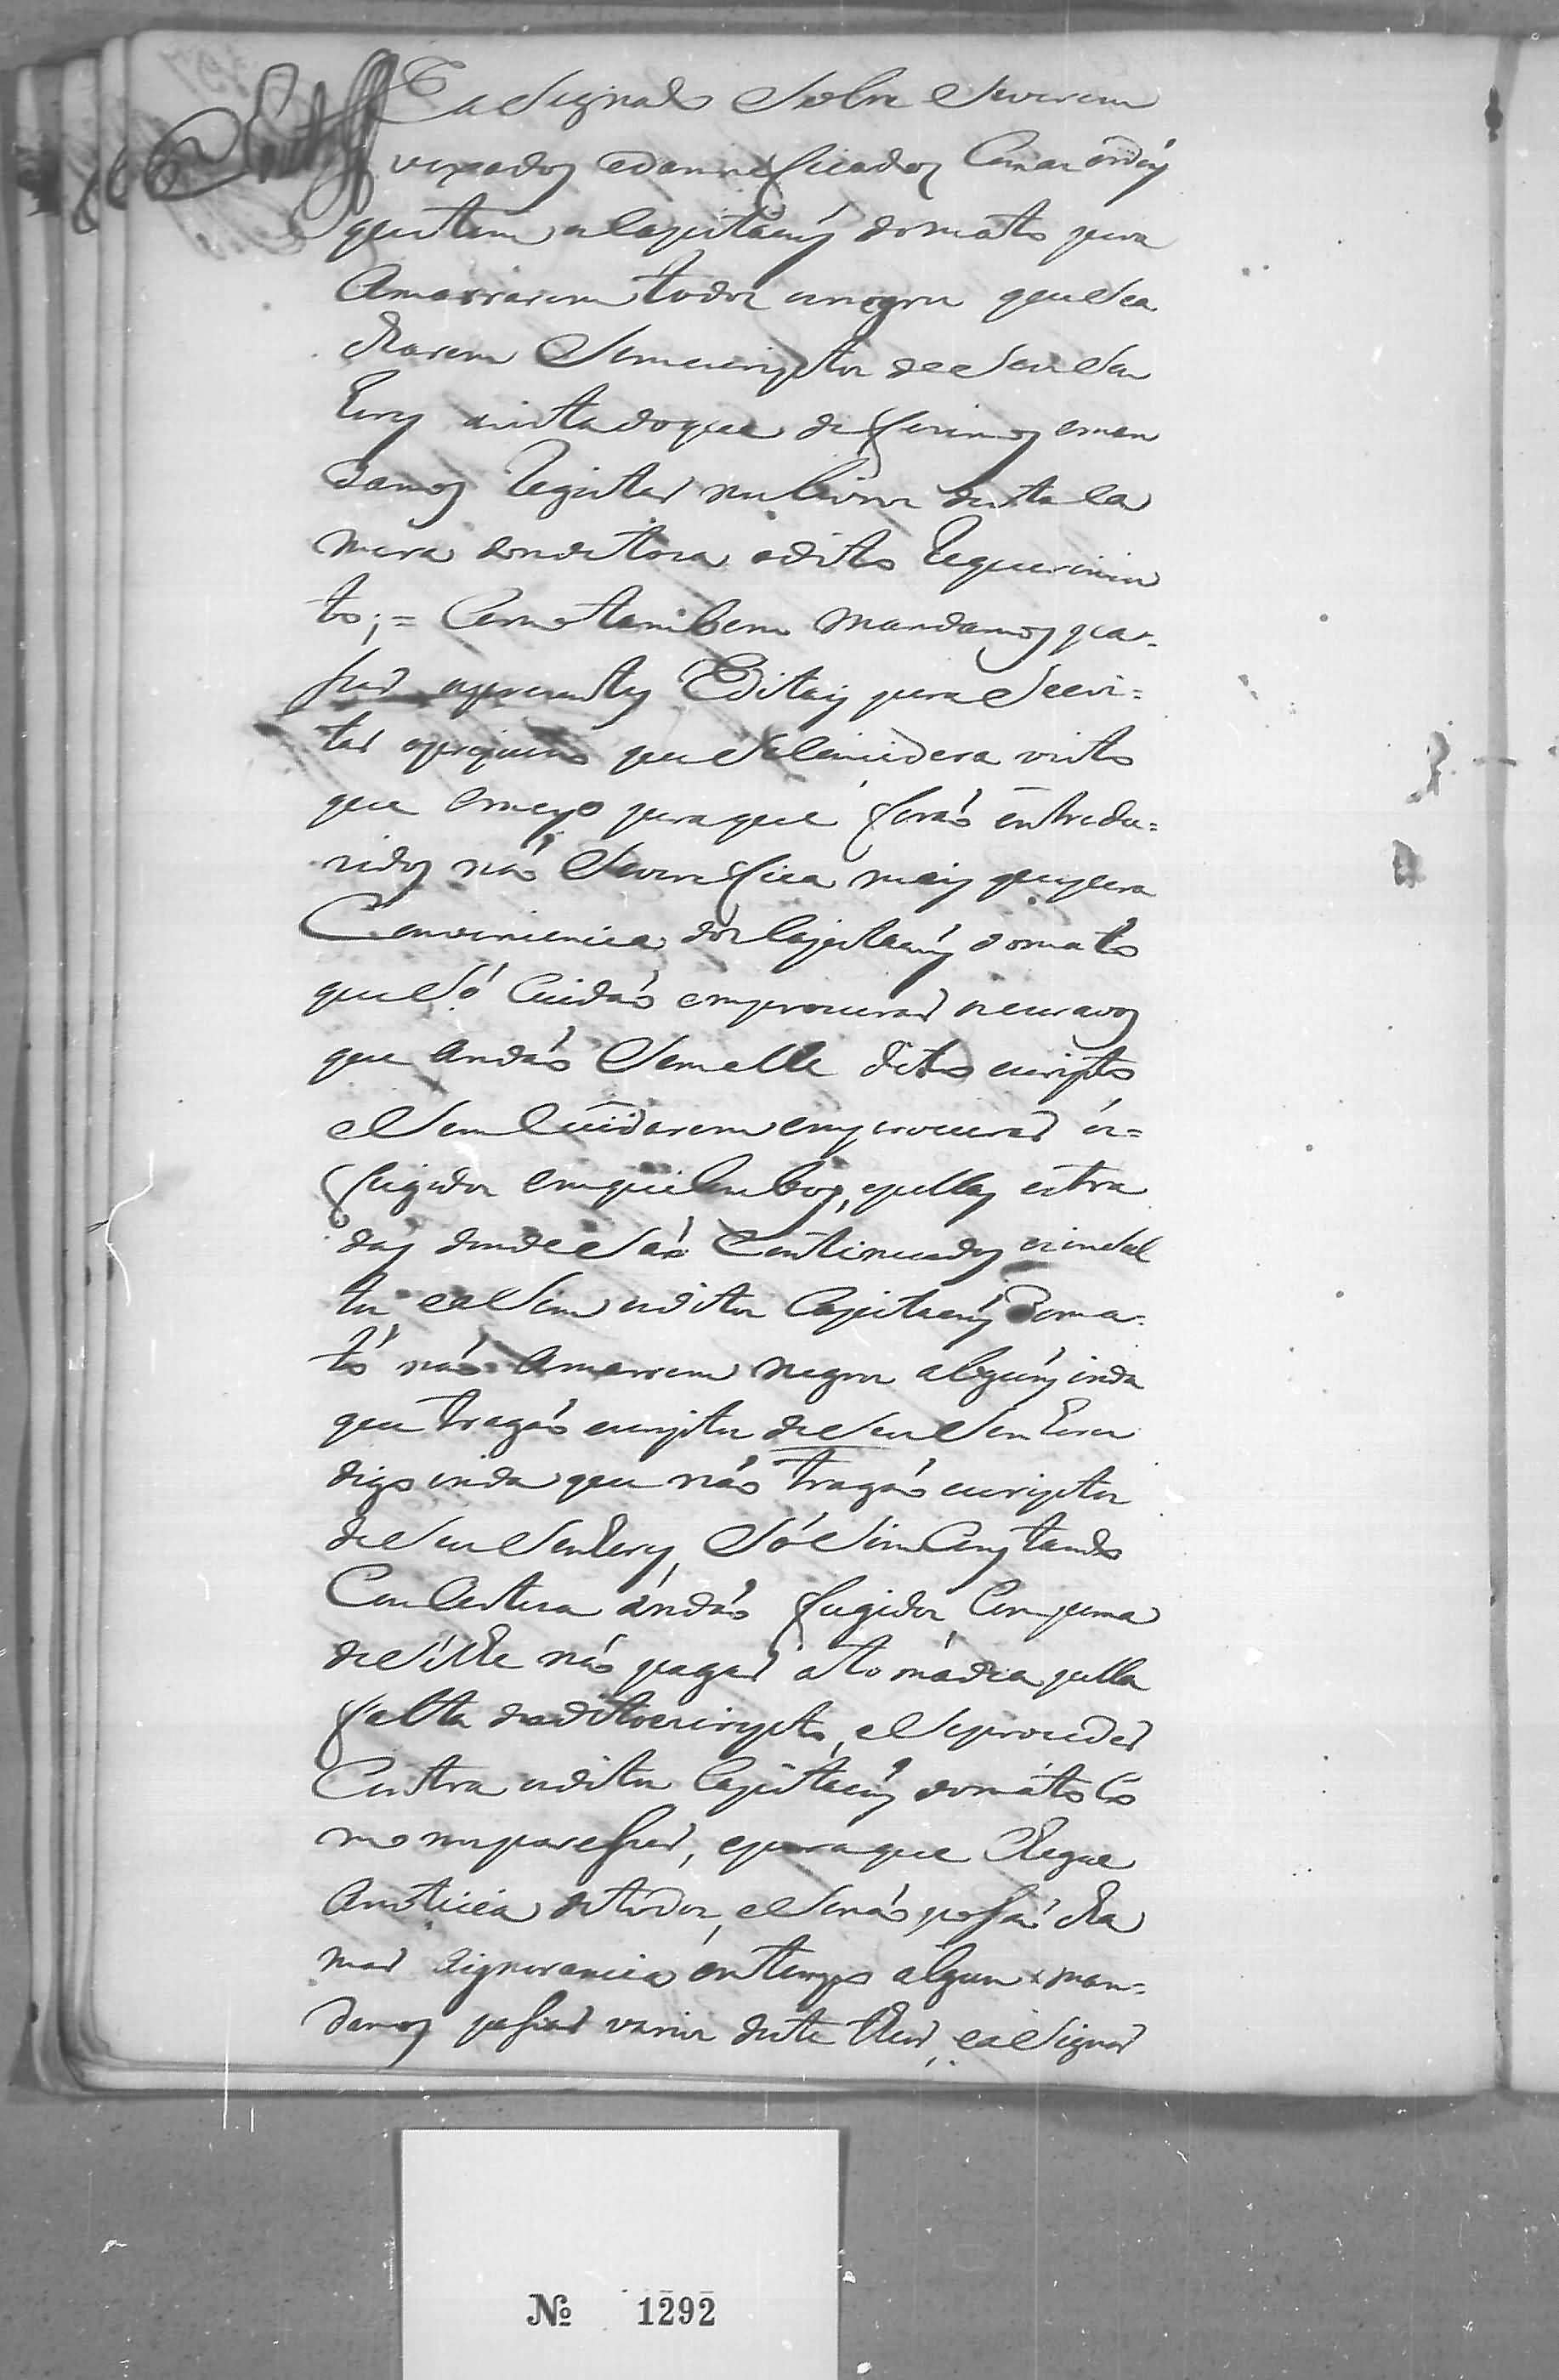 E asignado Sobre Severem
vexados edamneficados Com as órdēs
que tem os Capitaēs do mato pera
Amarrarem todos os negros que Sea
charem Sem escriptos de Seu Sen
hores vista do que deferimos eman
damos Registar nos Livros desta Ca
mera donde tóca o dito Requerimen
to; = Como tambem Mandamos pa-
sar os prezentes Editais pera Se evi=
tar o prejuizo que Se Concidera visto
que O meyo pera que forão entredu=
zidos não Se verefica mais que pera
Conveniencia dos Capitaēs do mato
que Só Cuidão em procurar os escravos
que andão Sem elle dito escripto
e Sem Cuidarem em procurar ós=
fugidos em quilombos, e pellas estra
das donde São Continuados os insul
tos e a Sim os ditos Capitaēs Do ma-
tó não Amarrem Negros alguns inda
que tragão escriptos de Seu Senhores
digo inda que não tragão escriptos
de Seu Senhores, Só Sim Constando
Com Certeza ándão fugidos Com pena
de Se lhe não pagar a tomádia pella
falta do dito escripto, e Se proceder
Contra os ditos Capitaēs do máto Co
mo nos paresser, e pera que chegue
A noticia de todos, e Se não posão cha
mar a ignorancia em tempo algum man=
damos pasar varios deste theor, e a Signar
Nº 1292